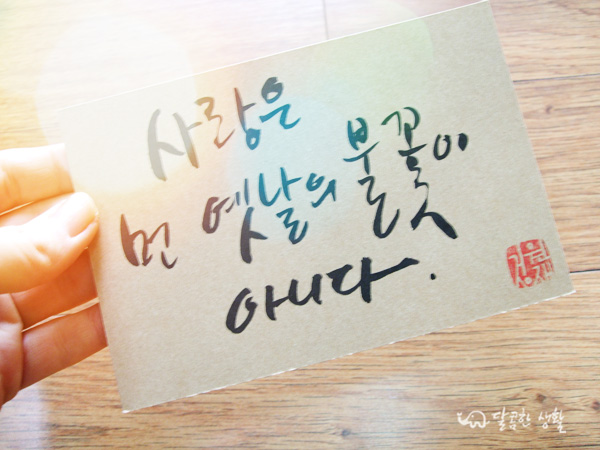 사랑은
먼 옛날의 불꽃이
아니다.
달콤한 생활